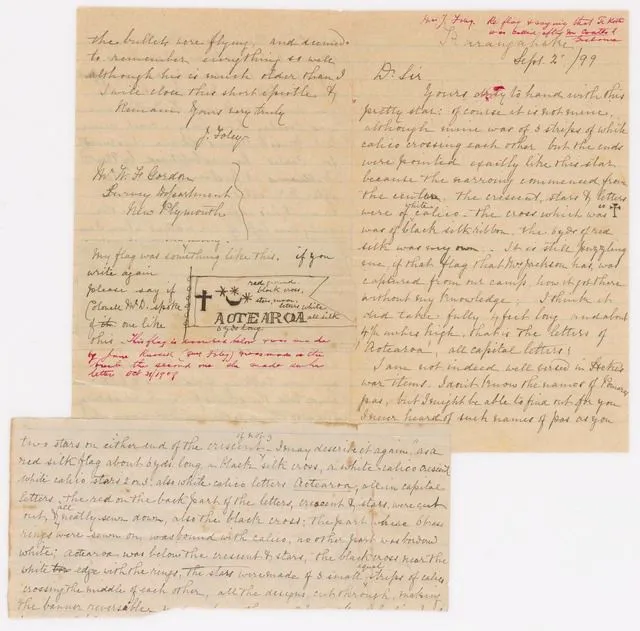 Mrs J. Foley Re flag & saying that Te Kooti
was
Sept. 2nd/99
Dr. Sir
Yours to hand with this
pretty star: of course it is not mine,
although mine was of 3 strips of white
calico crossing each other but the ends
were pointed exactly like this star
because the narrowing commenced from
the centre. The crescent, stars & letters
were of white calico - the cross which was
was of black silk ribbon. The 6 yds of red
silk was my own. It is still puzzling
me if that flag that Mrs Jackson has, was
captured from our camp, how it got there
without my knowledge: I think it
did take fully 4 feet long and about
high, that is the letters of
'Aotearoa', all capital letters;
I am not indeed well versed in
war items. I don't know the names of
pas, but I might be able to find out for you
I never heard of such names of pas as you
the bullets were flying, and seemed
to remember everything so well
although he is much older than I
I will close this short epistle &
Remain Yours very truly
J. Foley
Mr W. F. Gordon
Survey Department
New Plymouth
My flag was something like this, if you
write again
please say if
Colonel McD. spoke
of the one like
this
red ground
black cross,
star, moon
letters white
all silk
AOTEAROA
6 yds long
This flag is described below & was made
by Jane Russell (Mrs Foley)
the second one she made
letter Oct 21/1908
two stars on either end of the crescent if not 3
I may describe it again, "as a
red silk flag about 6 yds. long a black silk cross, a white calico crescent
white calico stars 2 or 3: also white calico letters Aotearoa, all in capital
letters, the red on the back part of the letters, crescent & stars, were cut
out, & all neatly sewn down, also the black cross; the part where 6 brass
rings were sewn on, was bound with calico, no other part was borderd
white; Aotearoa was below the crescent & stars, the black cross near the
white edge with the rings, the stars were made of 3 small equal strips of calico
crossing the middle of each other, all the designs, cut through, making
the banner reversable